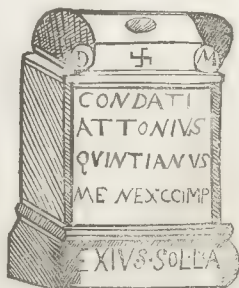 D M
CONDATI
ATTONIVS
QVINTIANVS
MENEXCCIMP
EXIVS·SOLLA